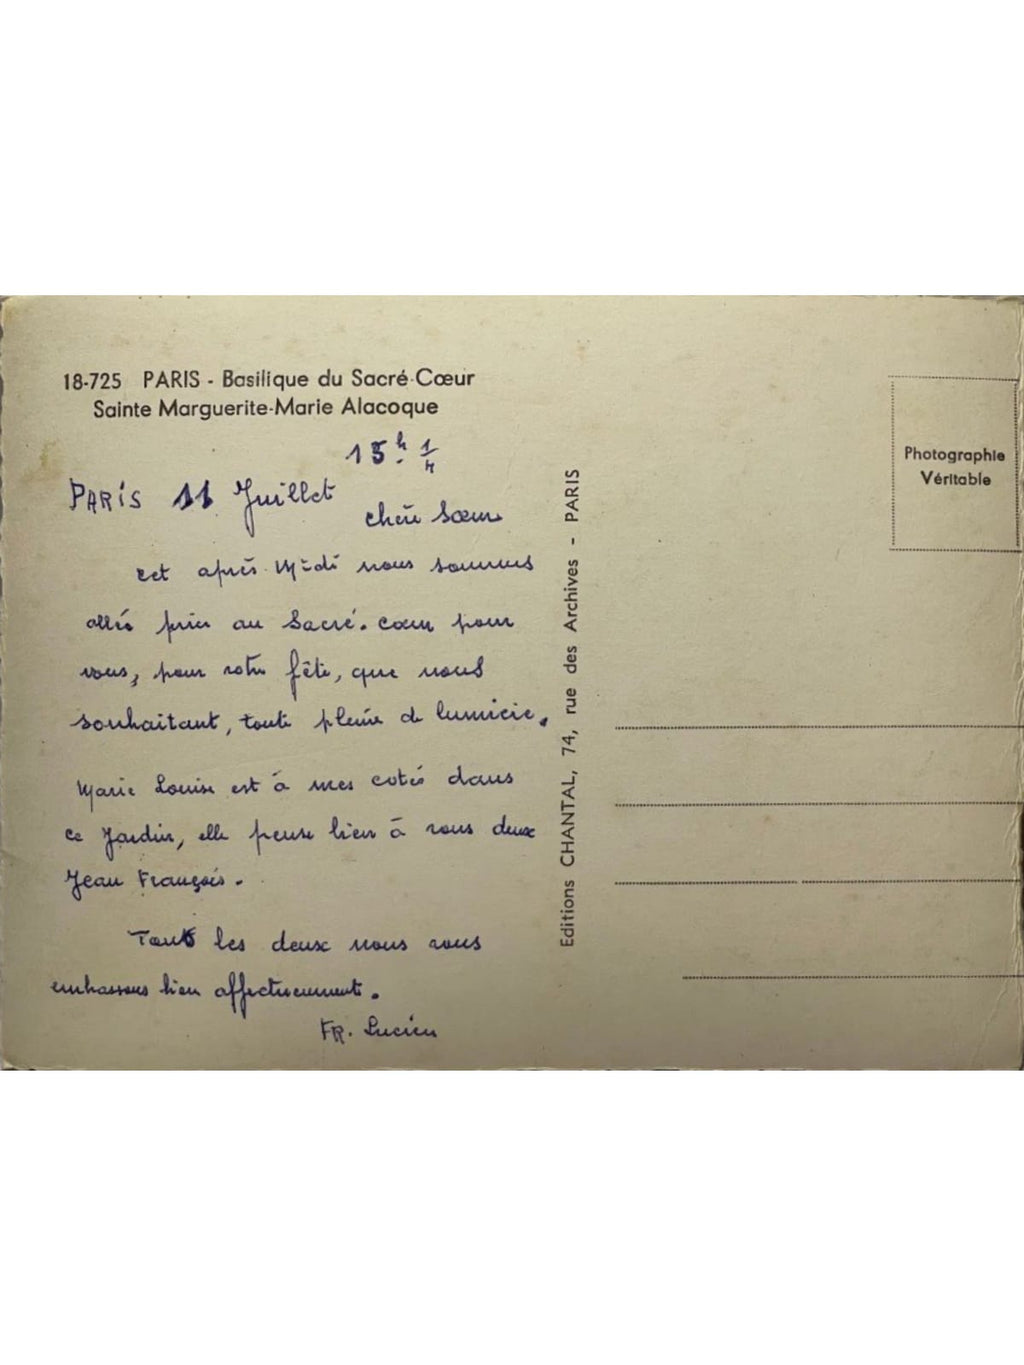 18-725 PARIS - Basilique du Sacré-Cœur
Sainte Marguerite-Marie Alacoque
15h 1/4
PARIS 11 Juillet
chère Sœur
cet après-Midi nous sommes
allés prier au Sacré-cœur pour
vous, pour votre fête, que nous
souhaitant, toute pleine de lumière.
Marie Louise est à mes cotés dans
ce Jardin, elle pense bien à vous deux
Jean François.
Tous les deux nous vous
embrassons bien affectueusement.
FR. Lucien
Editions CHANTAL, 74, rue des Archives - PARIS
Photographie
Véritable